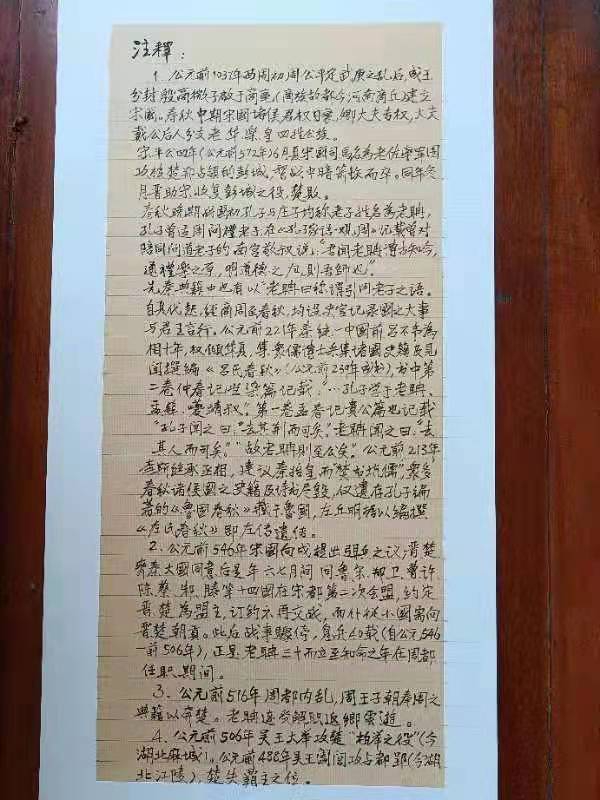 注釋：
1. 公元前1032年西周初周公平定武庚之乱后，成王
分封殷商微子啟于商丘（商族故都今河南商丘）建立
宋國。春秋中期宋國诸侯君权日衰，卿大夫专权，大夫
戴公后人分支老 华 樂 皇四姓公族。
宋平公四年（公元前572年）6月真宋國司馬名为老佐率军围
攻被楚邦占領的彭城，督战中暗箭按而卒。同年冬
月晋助宋收复彭城之役，楚败。
春秋晚期战國初孔子与庄子均称老子姓名為老聃，
孔子曾适周问禮老子，在《孔子家语·观周》记载曾对
陪同问道老子的南宫敬叔说："吾闻老聃博古知今，
通禮樂之原，明道德之归，则吾師也"。
先秦典籍中也有以"老聃曰称谓引用老子之语。
自其代起，經商周至春秋，均设史官记录國之大事
与君王言行。公元前221年秦統一中國前吕不韦為
相十年，权傾华夏，集賓儒博士兵集诸國史籍及见
闻撰编《吕氏春秋》（公元前239年成书），书中第
二卷仲春记当染篇记载："…孔子学于老聃、
孟蘇、夔靖叔"。第一卷孟春记貴公篇也记载
"孔子闻之曰："去其荆而可矣。"老聃闻之曰："去
其人而可矣。""故老聃则至公矣"。公元前213年
李斯继承丞相，建议秦始皇而"焚书坑儒"，衆多
春秋诸侯國之史籍及诗书尽毁，仅遗在孔子编
著的《魯國春秋》藏于魯國，左丘明得以编撰
《左氏春秋》即左传遗传。
2. 公元前546年宋國向戌提出弭兵之议，晋楚
齊秦大國同意后是年六七月间同鲁 宋 郑 卫 曹 许
陈 蔡 邾 滕等十四國在宋都第二次会盟，约定
晋楚為盟主，订约不再交战，而什從小國需向
晋楚朝貢。此后战事暫停，息兵40载（自公元546
—前506年），正是老聃三十而立至知命之年在周都
任职期间。
3. 公元前516年周都内乱，周王子朝奉周之
典籍以奔楚。老聃遂受解职返鄉雲遊。
4. 公元前506年吴王大举攻楚"柏举之役"（今
湖北麻城）。公元前488年吴王闔闾攻占都郢（今湖
北江陵），楚失霸主之位。